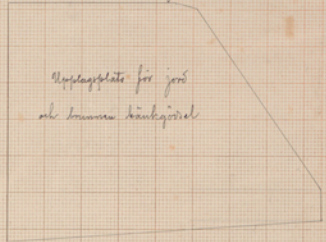 Upplagsplats för jord
och brunnen bänkgödsel